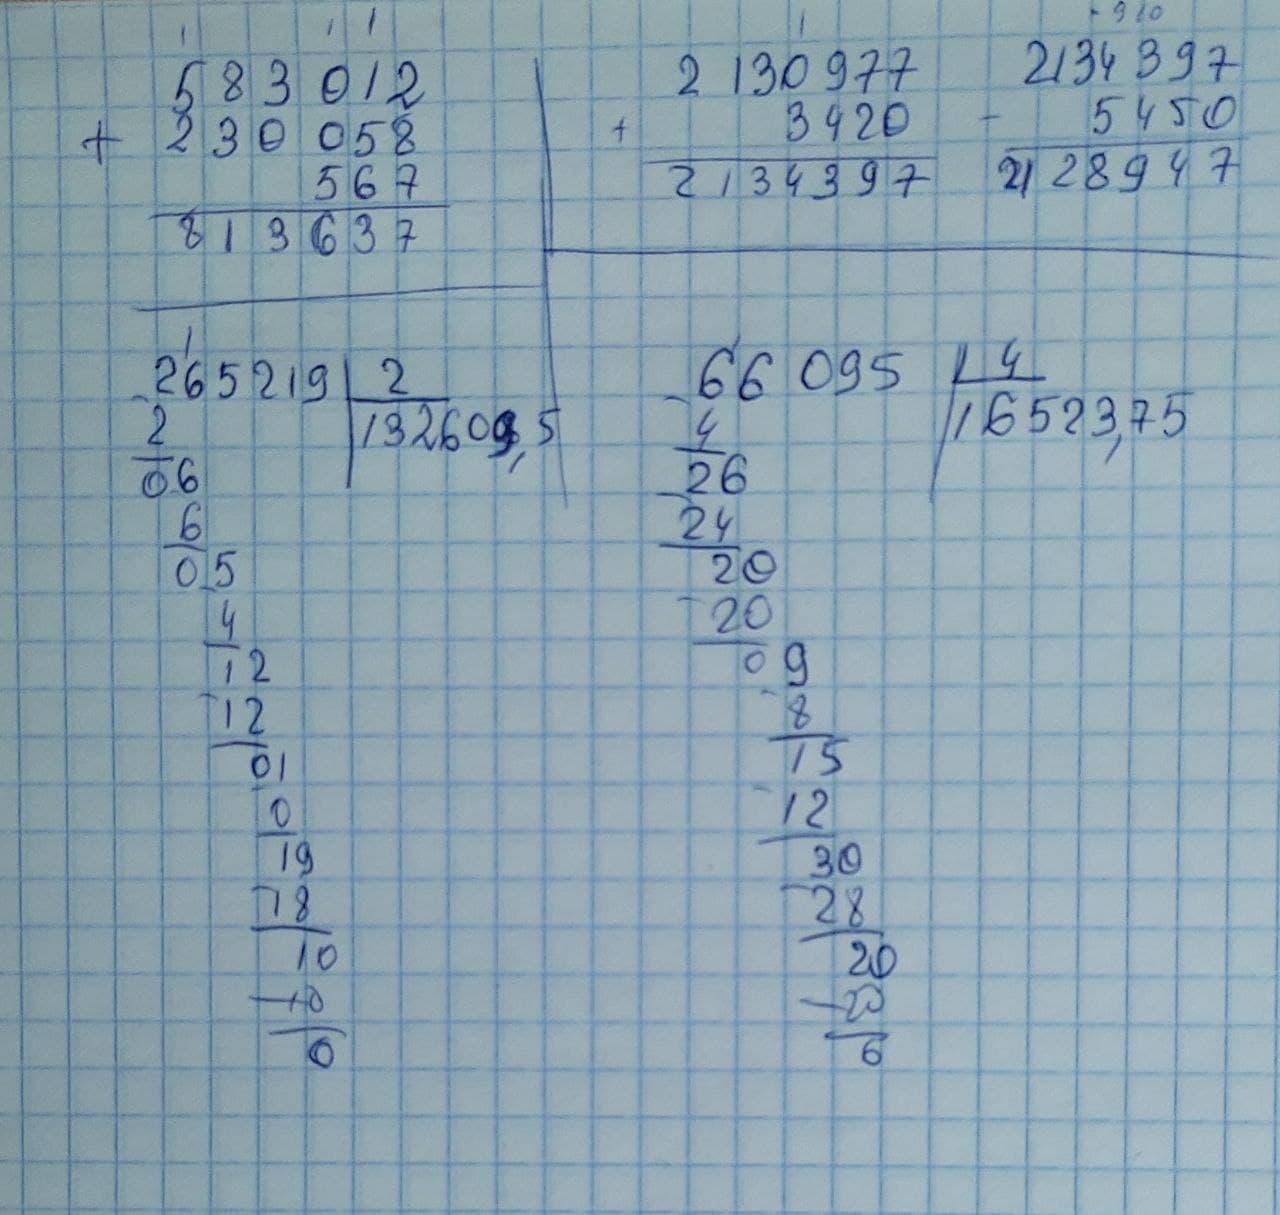 1 1 1
583 012
+ 230 058
567
813 637
1
2 130 977
+ 3420
2 134 397
• 9 10
2134 397
- 5 450
2128947
1
265219 | 2
- 2
132609,5
06
6
05
4
12
- 12
01
0
19
- 18
10
- 10
0
66 095 | 4
- 4
16523,75
26
- 24
20
- 20
09
- 8
15
- 12
30
- 28
20
- 20
0